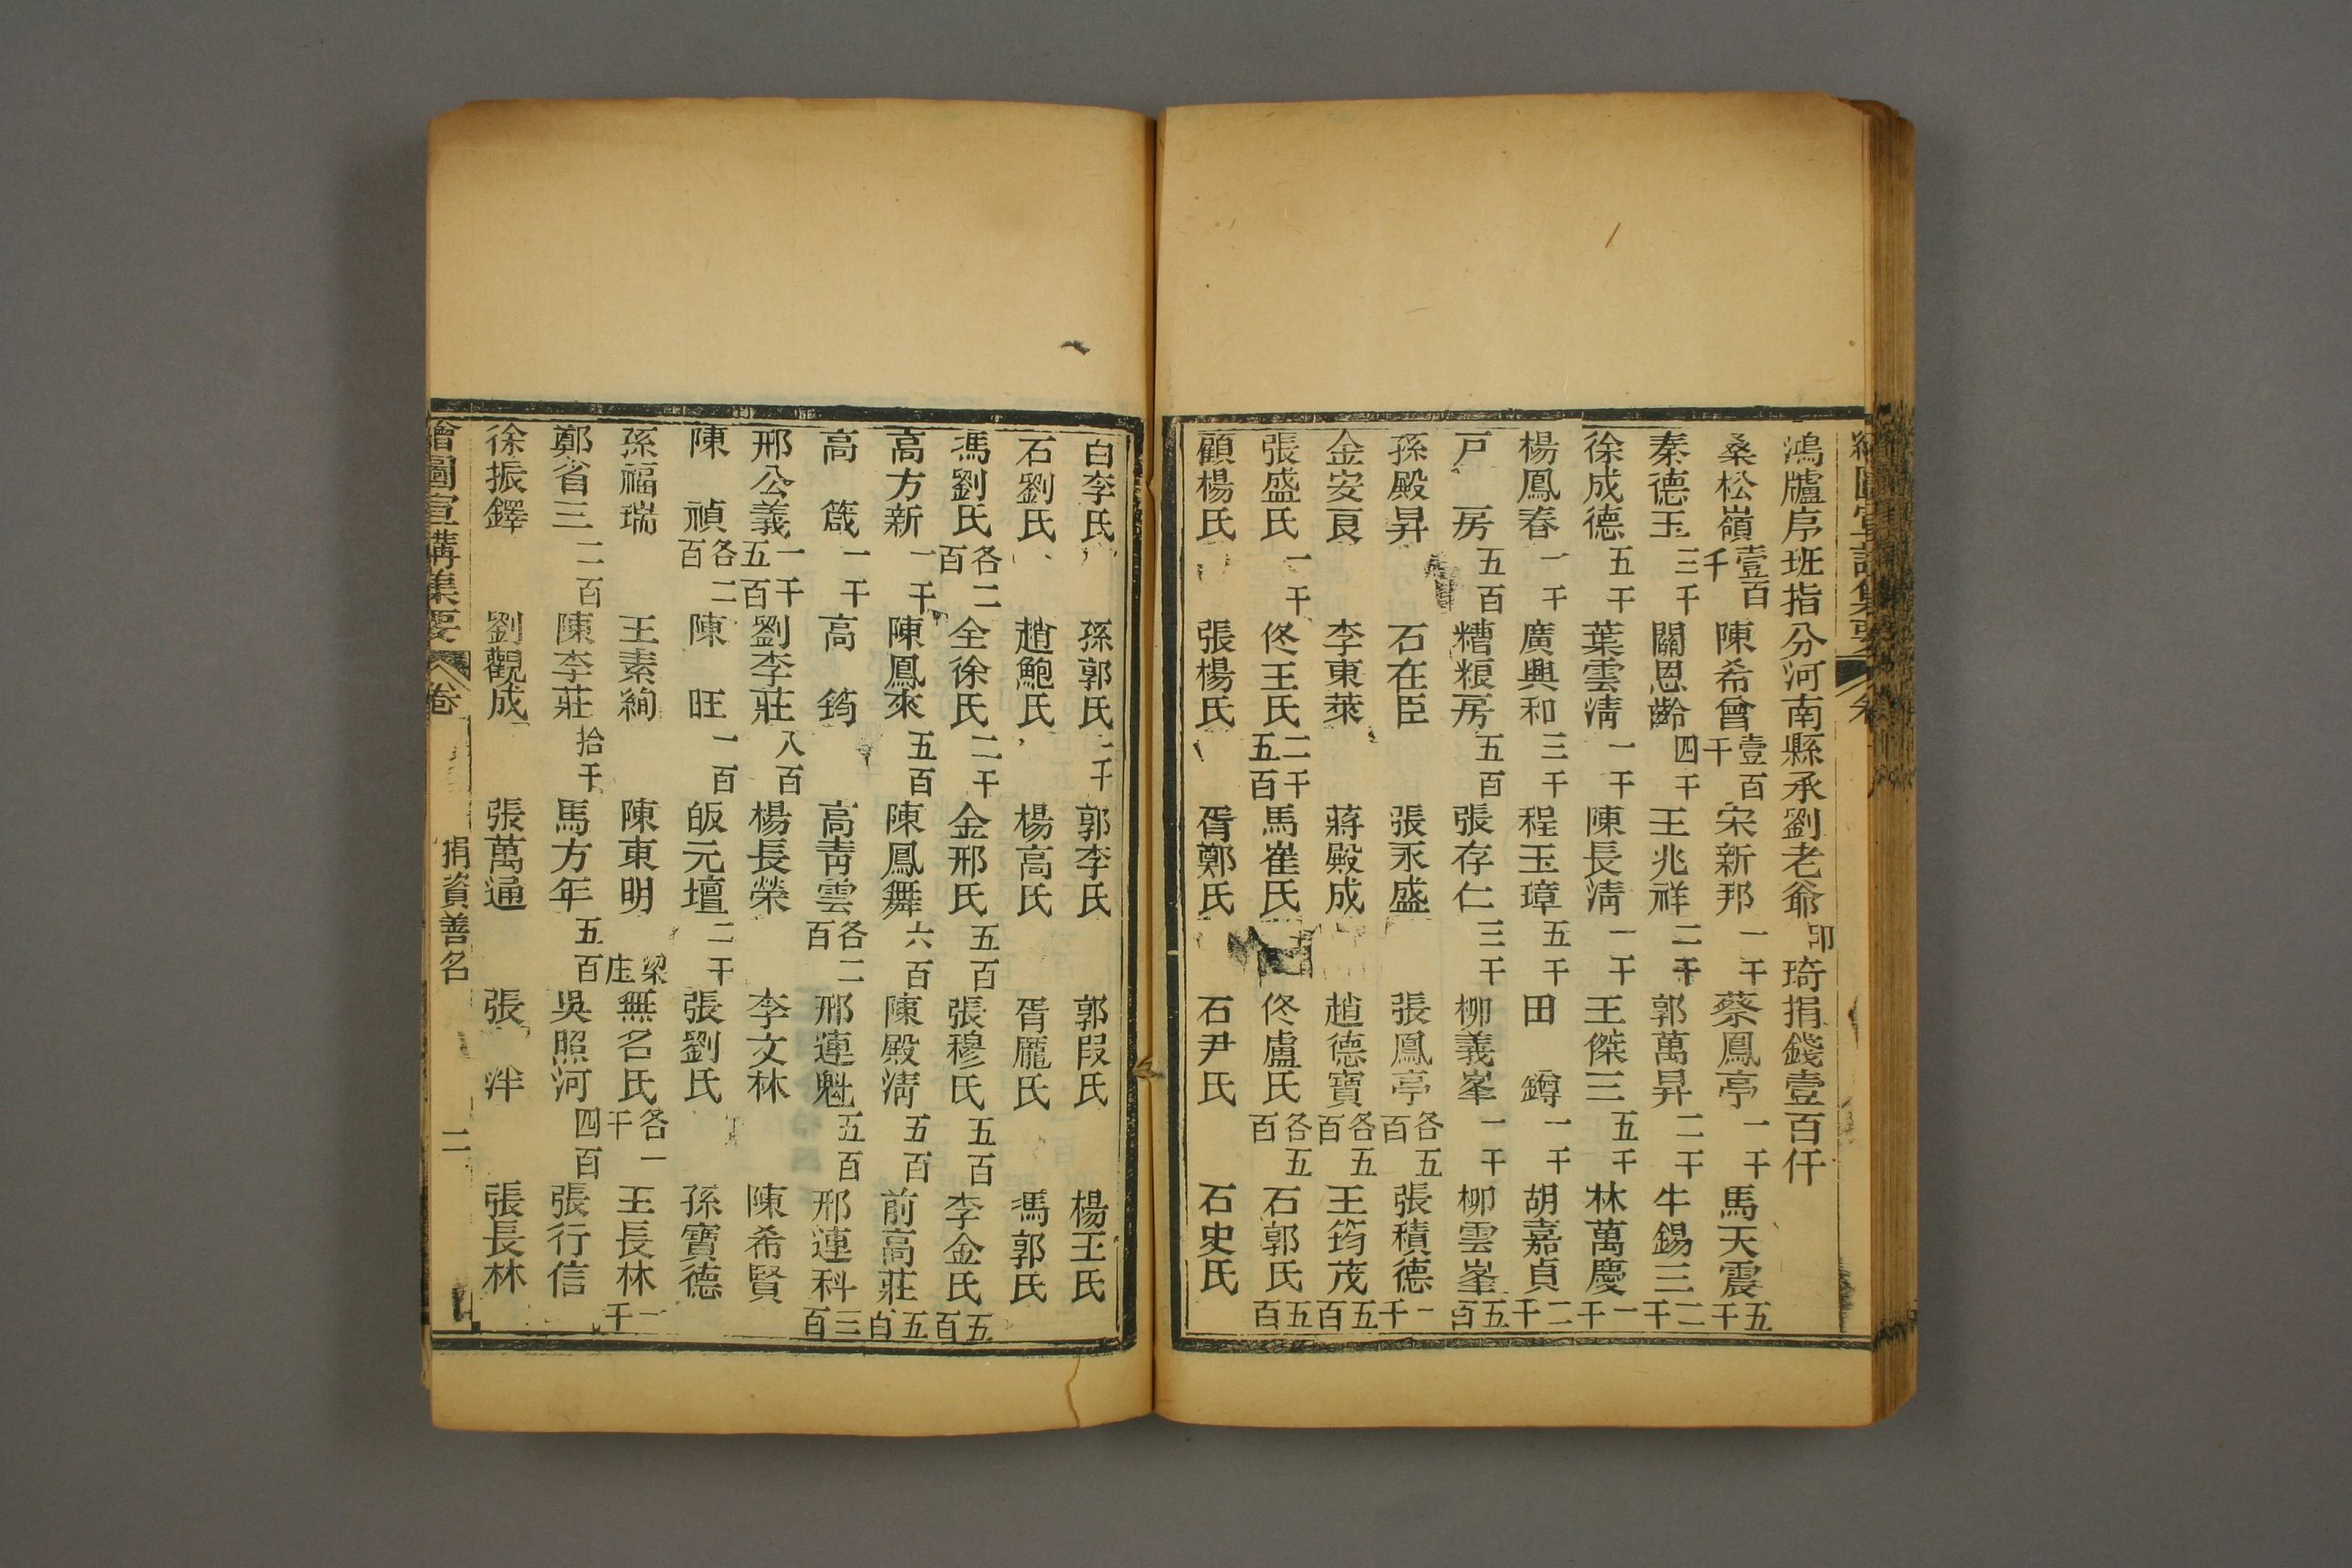 鴻臚序班指分河南縣承劉老爺印琦捐錢壹百仟
桑松嶺 壹百千 陳希曾 壹百千 宋新邦 一千 蔡鳳亭 一千 馬天震 五千
秦德玉 三千 關恩齡 四千 王兆祥 二千 郭萬昇 二千 牛錫三 二千
徐成德 五千 葉雲清 一千 陳長清 一千 王傑三 五千 林萬慶 一千
楊鳳春 一千 廣興和 三千 程玉璋 五千 田鐏 一千 胡嘉貞 二千
戸房 五百 糟粮房 五百 張存仁 三千 柳義峯 一千 柳雲峯 五百
孫殿昇 石在臣 張永盛 張鳳亭 各五百 張積德 一千
金安良 李東萊 蔣殿成 趙德寶 各五百 王筠茂 五百
張盛氏 一千 佟王氏 二千五百 馬崔氏 佟盧氏 各五百 石郭氏 五百
顧楊氏 張楊氏 胥鄭氏 石尹氏 石史氏
白李氏 孫郭氏 二千 郭李氏 郭段氏 楊王氏
石劉氏 趙鮑氏 楊高氏 胥龐氏 馮郭氏
馮劉氏 各二百 全徐氏 二千 金邢氏 五百 張穆氏 五百 李金氏 五百
高方新 一千 陳鳳來 五百 陳鳳舞 六百 陳殿清 五百 前高莊 五百
高箴 一千 高筠 高青雲 各二百 邢連魁 五百 邢連科 三百
邢公義 一千五百 劉李莊 八百 楊長榮 李文林 陳希賢
陳禎 各二百 陳旺 一百 皈元壇 二千 張劉氏 孫寶德
孫福瑞 王素絢 陳東明 梁庄 無名氏 各一千 王長林 一千
鄭省三 二百 陳李莊 拾千 馬方年 五百 吳照河 四百 張行信
徐振鐸 劉觀成 張萬通 張泮 張長林
繪圖宣講集要 卷 捐資善名 二